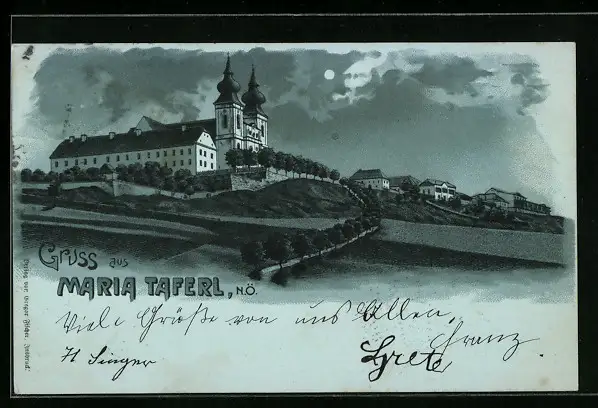 Gruss aus
MARIA TAFERL, N.Ö.
Viele Grüße von uns Allen,
Franz
H Singer
Grete